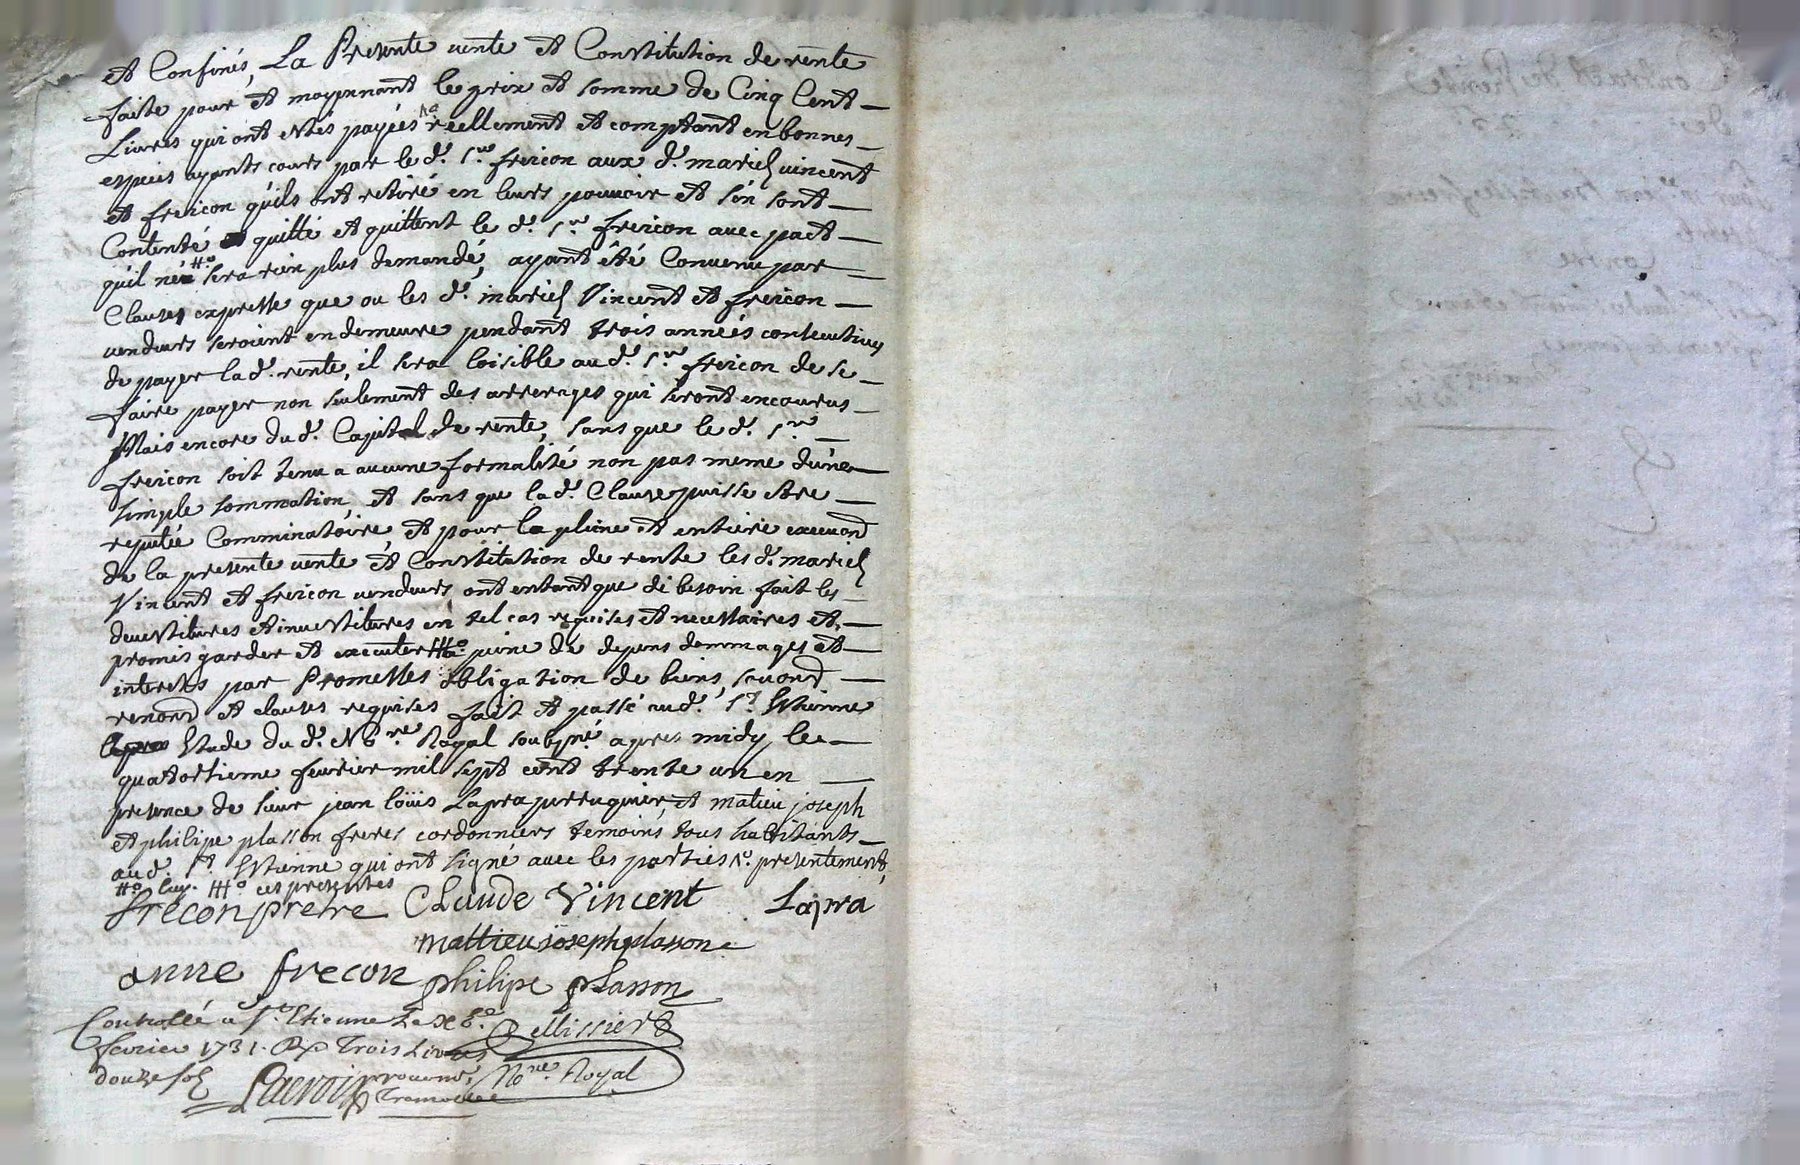 et Confinés, La Presente vente et Constitution de rente
faite pour et moyennant le prix et somme de Cinq Cent
Livres qui ont etés payées reellement et comptant en bonnes
especes ayants cours par le d. Sr. freicon aux d. mariés vincent
et freicon qu'ils ont retiré en leurs pouvoir et s'en sont
Contenté quitté et quittent le d. Sr. freicon avec pact
qu'il né sera rien plus demandé, ayant été Convenu par
Clauses expresse que ou les d. mariés Vincent et freicon
vendeurs seroient en demeure pendant trois années consecutives
de payer la d. rente, il sera loisible au d. Sr. freicon de se
faire payer non seulement des arrerages qui seront encourus
Mais encore du d. Capital de rente, sans que le d. Sr.
freicon soit tenu a aucune formalité non pas meme d'une
simple sommation, et sans que la d. Clause puisse etre
reputée Comminatoire, et pour la pleine et entiere execuon
de la presente vente et Constitution de rente les d. mariés
Vincent et freicon vendeurs ont entant que de besoin fait les
devestitures et investitures en tel cas requises et necessaires et
promis garder et executer peine de depens dommages et
interets par Promesses obligation de biens, soumons
renons et clauses requises fait et passé au d. St. Estienne
Etude du d. Nore. Royal soubsné. apres midy le
quatorsieme fevrier mil sept cent trente un en
presence de sieur jean loüis Lapra perruquier, et matieu joseph
et philipe plasson freres cordonniers temoins, tous habitants
au d. St. Estienne qui ont signé avec les parties ro. presentement,
Ho luy. HHo ces presentes
frecon pretre Claude Vincent Lapra
mattieu joseph plasson
anne frecon philipe plasson
Controllé a St. Etienne Le
fevrier 1731. Rx Trois Livres Pellissier
douze sols Lacroix Nore. Royal